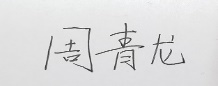 周青龙